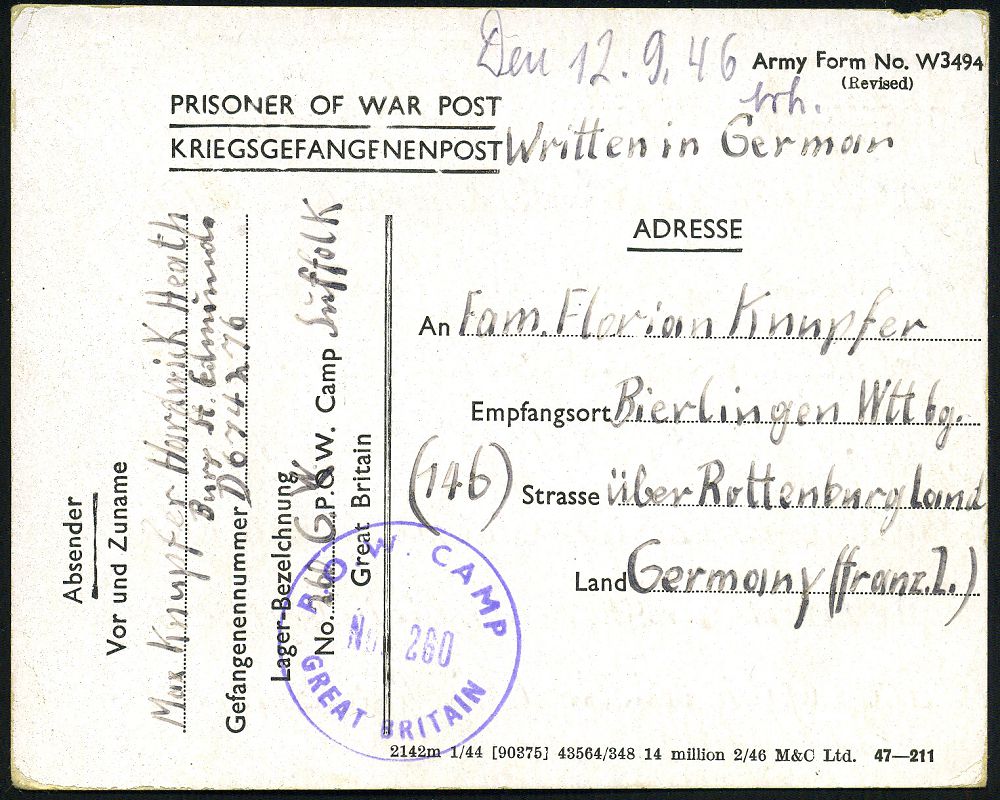 Den 12. 9. 46
Army Form No. W3494
(Revised)
PRISONER OF WAR POST
KRIEGSGEFANGENENPOST
Written in German
ADRESSE
An Fam. Florian Knupfer
Empfangsort Bierlingen Wttbg.
(146) Strasse über Rottenburg Land
Land Germany (franz. Z.)
Absender
Vor und Zuname
Max Knupfer Hardwik Heath
Bury St. Edmunds
Gefangenennummer D674276
Lager-Bezeichnung
No. 260 G.W. P.O.W. Camp Suffolk
Great Britain
P.O.W. CAMP
No. 260
GREAT BRITAIN
2142m 1/44 [90375] 43564/348 14 million 2/46 M&C Ltd. 47—211